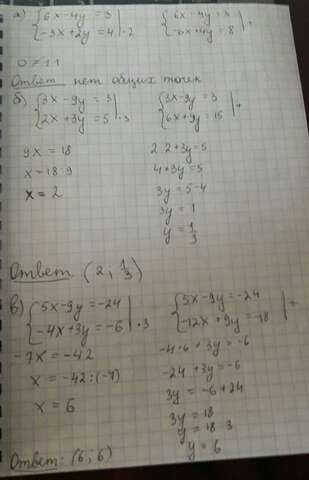 а) {6x - 4y = 3
{-3x + 2y = 4 | · 2
{6x - 4y = 3
{-6x + 4y = 8 | +
0 ≠ 11
Ответ нет общих точек
б) {3x - 9y = 3
{2x + 3y = 5 | · 3
{3x - 9y = 3
{6x + 9y = 15 | +
9x = 18
x = 18 : 9
x = 2
2 · 2 + 3y = 5
4 + 3y = 5
3y = 5 - 4
3y = 1
y = 1/3
Ответ. (2; 1/3)
в) {5x - 9y = -24
{-4x + 3y = -6 | · 3
{5x - 9y = -24
{-12x + 9y = -18 | +
-7x = -42
x = -42 : (-7)
x = 6
-4 · 6 + 3y = -6
-24 + 3y = -6
3y = -6 + 24
3y = 18
y = 18 : 3
y = 6
Ответ: (6; 6)